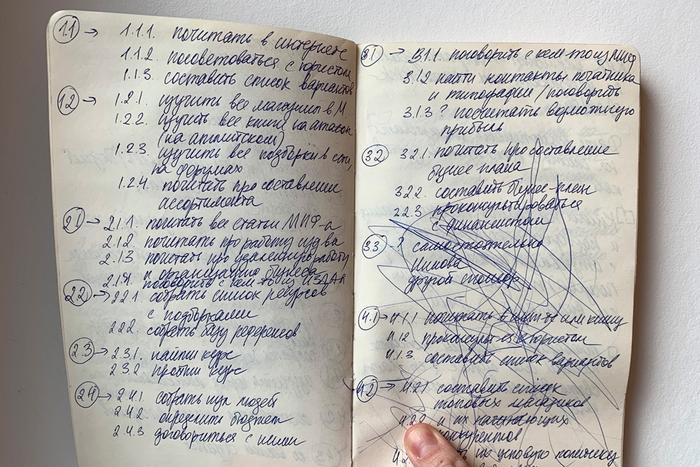 1.1 → 1.1.1. почитать в интернете
1.1.2. посоветоваться с юристом
1.1.3 составить список вариантов
1.2 → 1.2.1. изучить все магазины в М.
1.2.2. изучить все книги на амазон
(на английском)
1.2.3 изучить все подборки в сети,
на форумах
1.2.4. почитать про составление
ассортимента
2.1 → 2.1.1. почитать все статьи МИФ-а
2.1.2 почитать про работу изд-ва
2.1.3 почитать про удаленную работу
и организацию бизнеса
2.1.4 поговорить с кем-то из
2.2 → 2.2.1 собрать список ресурсов
с подборками
2.2.2. собрать базу референсов
2.3 → 2.3.1. найти курс
2.3.2 пройти курс
2.4 → 2.4.1 собрать пул людей
2.4.2. определить бюджет
2.4.3 договориться с ними
3.1 → 3.1.1. поговорить с кем-то из МИФ
3.1.2 найти контакты печатника
и типографии / поговорить
3.1.3 ? посчитать возможную
прибыль
3.2 3.2.1. почитать про составление
бизнес плана
3.2.2 составить бизнес-план
2.2.3 проконсультироваться
с финансистом
3.3 → ? самостоятельно
другой способ
4.1 → 4.1.1 почитать в инт-те или книгу
4.1.2 с юристом
4.1.3 составить список вариантов
4.2 → 4.2.1 составить список
топовых магазинов
и их
конкурентов
их ценовую политику